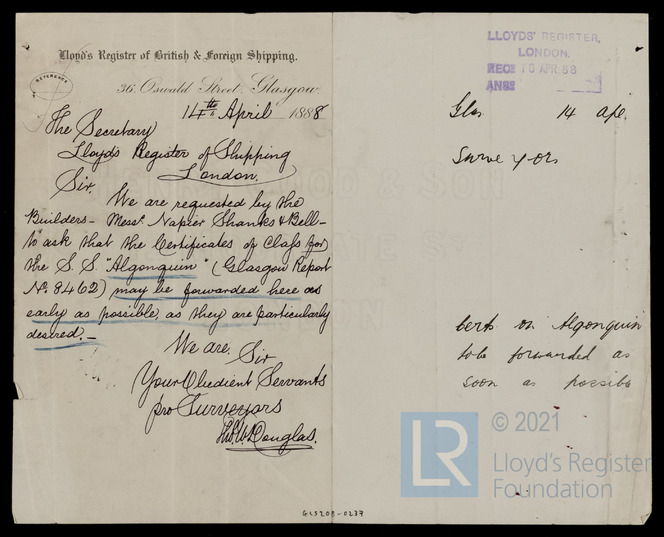 Lloyd's Register of British & Foreign Shipping.
REFERENCE
36, Oswald Street, Glasgow.
14th April 1888
The Secretary
Lloyd's Register of Shipping
London.
Sir,
We are requested by the
Builders - Messrs. Napier Shanks & Bell -
to ask that the Certificates of Class for
the S.S. "Algonquin" (Glasgow Report
No. 8462) may be forwarded here as
early as possible, as they are particularly
desired. -
We are, Sir
Your Obedient Servants
pro Surveyors
Douglas.
LLOYDS' REGISTER,
LONDON.
RECD 16 APR. 88
ANSD
Glas 14 Apl.
Surveyors
Certs on Algonquin
to be forwarded as
soon as possible
LR
© 2021
Lloyd's Register
Foundation
GLS208-0237